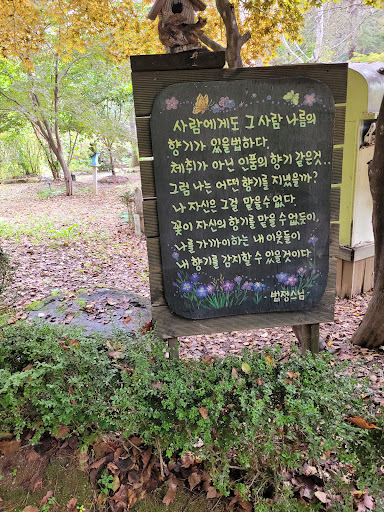 사람에게도 그 사람 나름의
향기가 있을법하다.
체취가 아닌 인품의 향기 같은것..
그럼 나는 어떤 향기를 지녔을까?
나 자신은 그걸 맡을수 없다.
꽃이 자신의 향기를 맡을 수 없듯이,
나를 가까이하는 내 이웃들이
내 향기를 감지할 수 있을것이다.
· 법정스님 ·